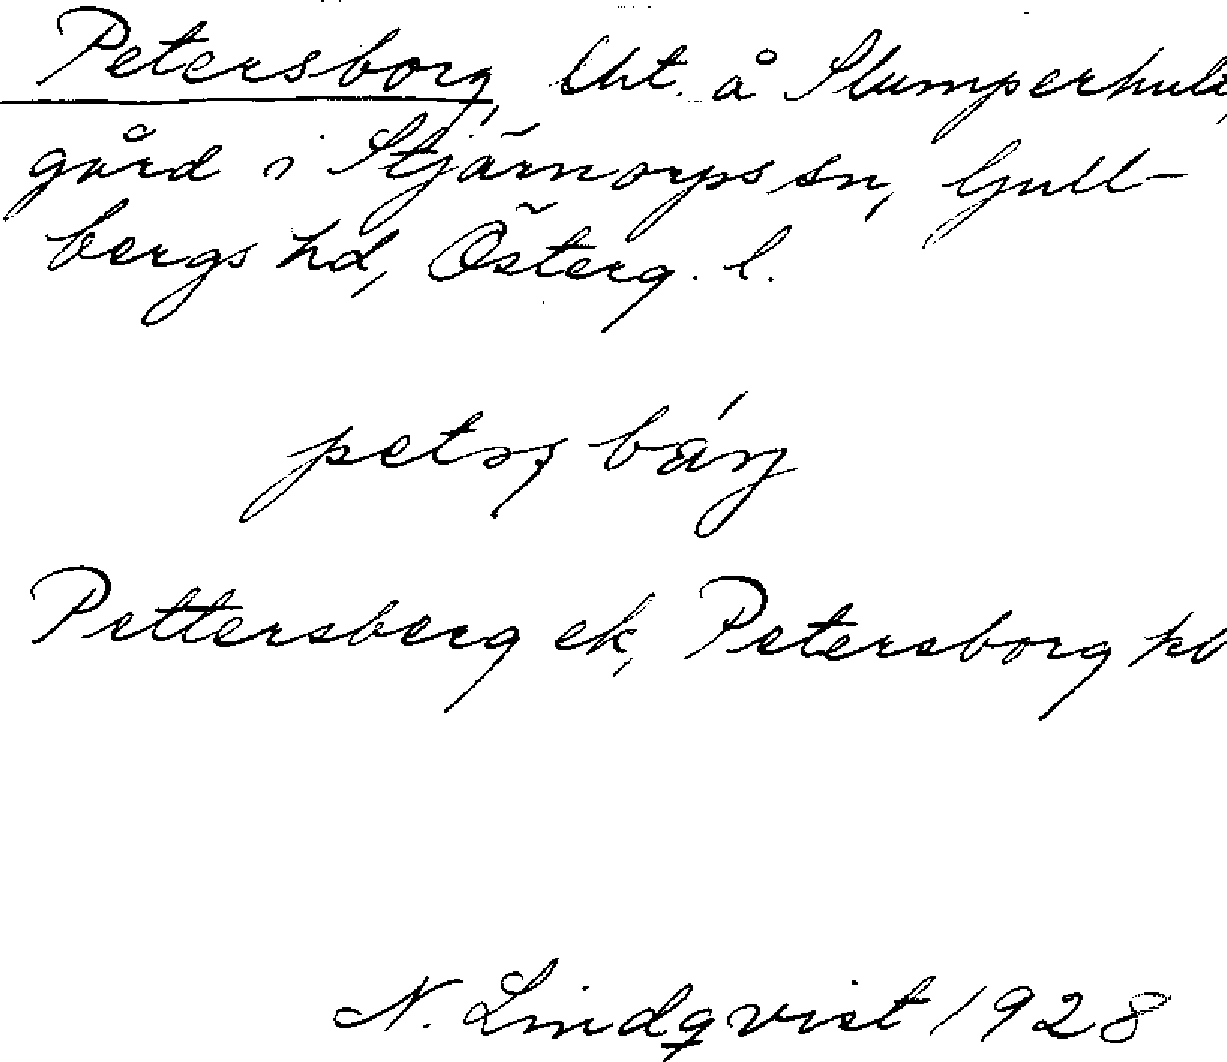 Petersborg, Uht. å Slumperhult,
gård i Stjärnorps sn, Gull-
bergs hd, Österg. l.
Pettersberg ek, Petersborg
N. Lindqvist 1928